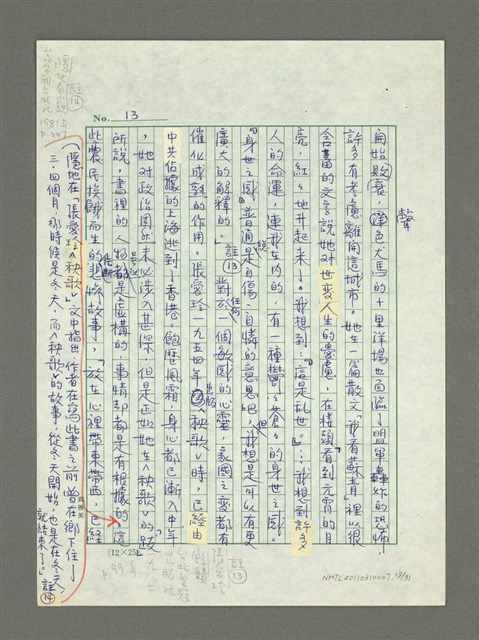 No. 13
開始敗衰,聲色犬馬的十里洋場也面臨了盟軍轟炸的恐怖,
許多有考慮離開這城市。她在一篇散文「我看蘇青」裡以很
含蓄的文字說她對世變人生的憂慮,在樓頭「看到元宵的月
亮,紅紅地升起來了。我想到:『這是亂世。』…我想到許多
人的命運,連我在內的,有一種鬱鬱蒼蒼的身世之感。
『身世之感』普通總是自傷、自憐的意思吧,但我想是可以有更
廣大的解釋的。」註⑬對於任何一個敏感的心靈,家國之變都有
催化成熟的作用。張愛玲一九五四年出版《秧歌》時,已經由
中共佔據的上海逃到了香港,飽歷風霜,身心都已漸入中年
,她對政治圈所未必涉入甚深,但是正如她在《秧歌》的「跋」
所說,書裡的人物雖都是虛構的,事情却都是有根據的。這
些農民挨餓而生的悲慘故事,「放在心裡帶東帶西,已經
(隱地在「張愛玲《秧歌》」文中指出,作者在寫此書之前,曾在鄉下住了
三、四個月,那時候是冬天,而《秧歌》的故事,從冬天開始,也是在冬天
就結束了。」註⑭
(12×25)
註⑬
註⑭
1981年
P.99
NMTL20110310007, 13/31